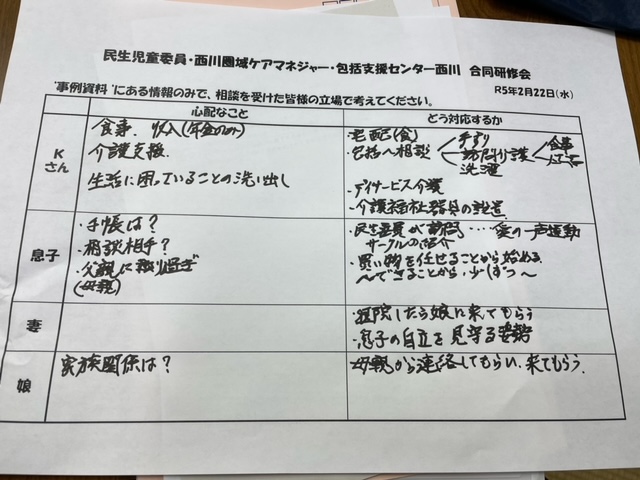 民生児童委員・西川圏域ケアマネジャー・包括支援センター西川 合同研修会
R5年2月22日(水)
"事例資料"にある情報のみで、相談を受けた皆様の立場で考えてください。
心配なこと
どう対応するか
Kさん
食事、収入(年金のみ)
介護支援、
生活に困っていることの洗い出し
・宅配(食)
・包括へ相談
手すり
訪問介護
洗濯
食事
・デイサービス介護
・介護福祉器具の設置
息子
・手帳は?
・相談相手?
・父親に頼り過ぎ
(母親)
・民生委員が訪問…愛の一声運動
サークルの紹介
・買い物を任せることから始める
〜できることから、少しずつ〜
妻
・退院したら娘に来てもらう
・息子の自立を見守る姿勢
娘
家族関係は?
母親から連絡してもらい、来てもらう。